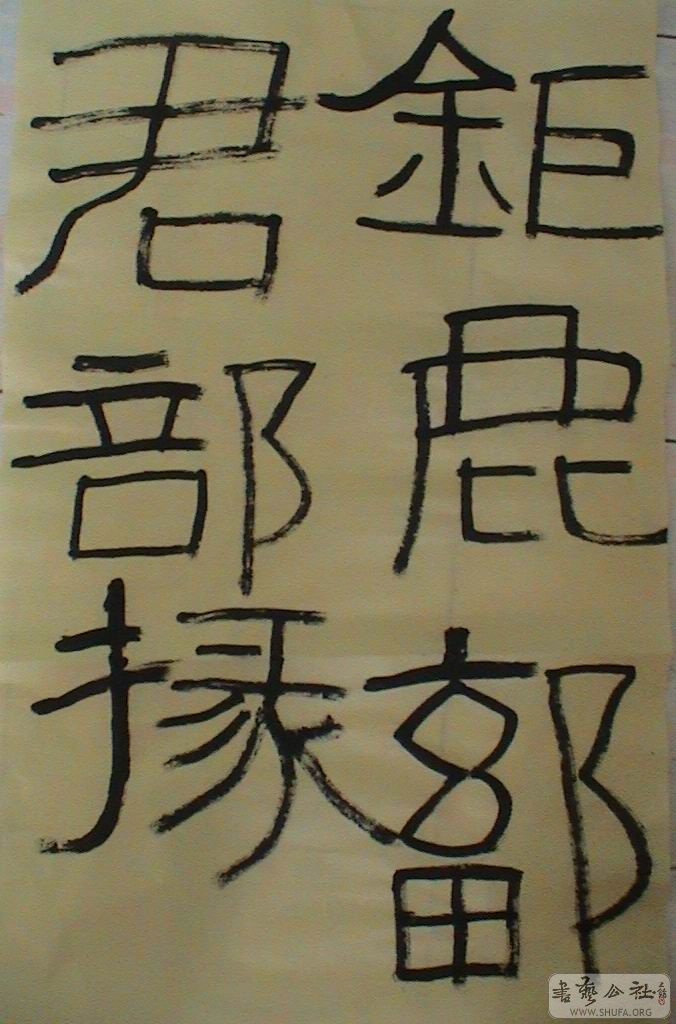 鉅鹿鄐
君部掾
書藝公社
WWW.SHUFA.ORG